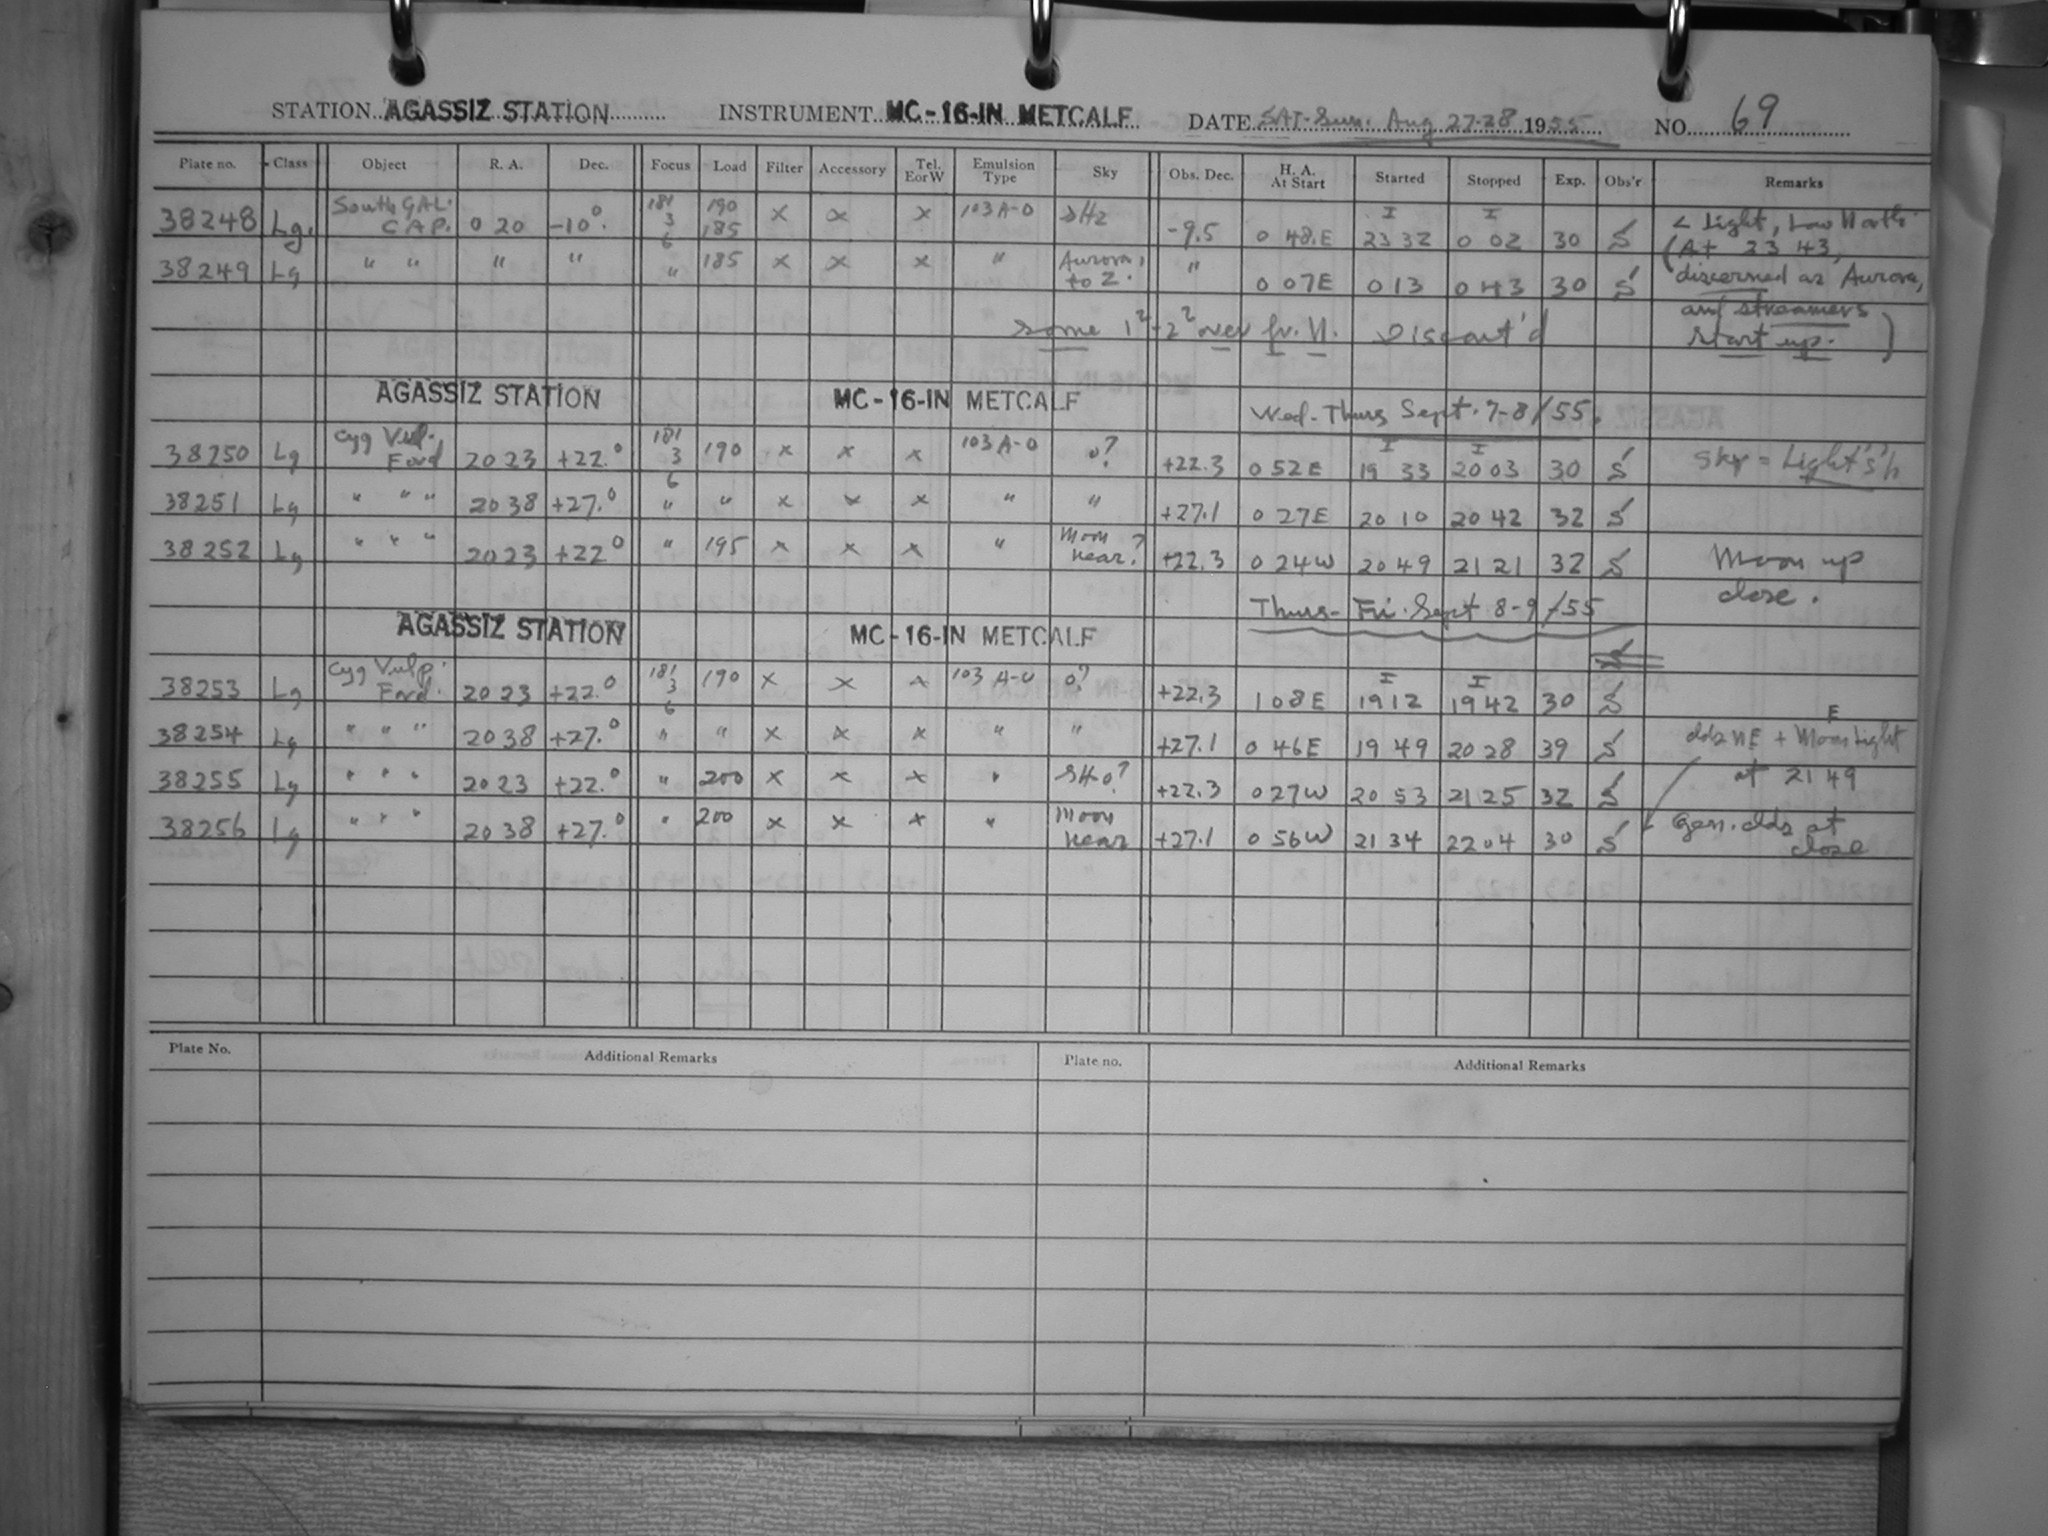 STATION AGASSIZ STATION INSTRUMENT MC-16-IN METCALF DATE SAT-Sun. Aug 27-28 1955 NO. 69
Plate no. Class Object R. A. Dec. Focus Load Filter Accessory Tel. E or W Emulsion Type Sky Obs. Dec. H. A. At Start Started Stopped Exp. Obs'r Remarks
38248 Lg. South GAL. CAP. 0 20 -10° 181 3 6 190 185 x x x 103 A-O -9.5 0 48.E I 23 32 I 0 02 30 S < Light, Low North
38249 Lg " " " " " 185 x x x " Aurora, to Z. " 0 07E 0 13 0 43 30 S (At 23 43, discerned as Aurora,
some 1²-2² over fr. N. Discont'd and streamers start up. )
AGASSIZ STATION MC-16-IN METCALF Wed-Thurs Sept. 7-8/55.
38250 Lg Cyg Vul. Ford 20 23 +22.° 181 3 6 190 x x x 103 A-O o? +22.3 0 52E I 19 33 I 20 03 30 S Sky = Light's'h
38251 Lg " " " 20 38 +27.° " " x x x " " +27.1 0 27E 20 10 20 42 32 S
38252 Lg " " " 20 23 +22° " 195 x x x " Moon near? +22.3 0 24W 20 49 21 21 32 S Moon up close.
AGASSIZ STATION MC-16-IN METCALF Thurs-Fri. Sept 8-9/55
38253 Lg Cyg Vulp. Ford. 20 23 +22.° 181 3 6 190 x x x 103 A-O o? +22.3 1 08E I 19 12 I 19 42 30 S
38254 Lg " " " 20 38 +27.° " " x x x " " +27.1 0 46E 19 49 20 28 39 S clds NE + E Moon Light
38255 Lg " " " 20 23 +22.° " 200 x x x " SHo? +22.3 0 27W 20 53 21 25 32 S at 21 49
38256 Lg " " " 20 38 +27.° " 200 x x x " Moon near +27.1 0 56W 21 34 22 04 30 S Gen. clds at close
Plate No. Additional Remarks Plate no. Additional Remarks